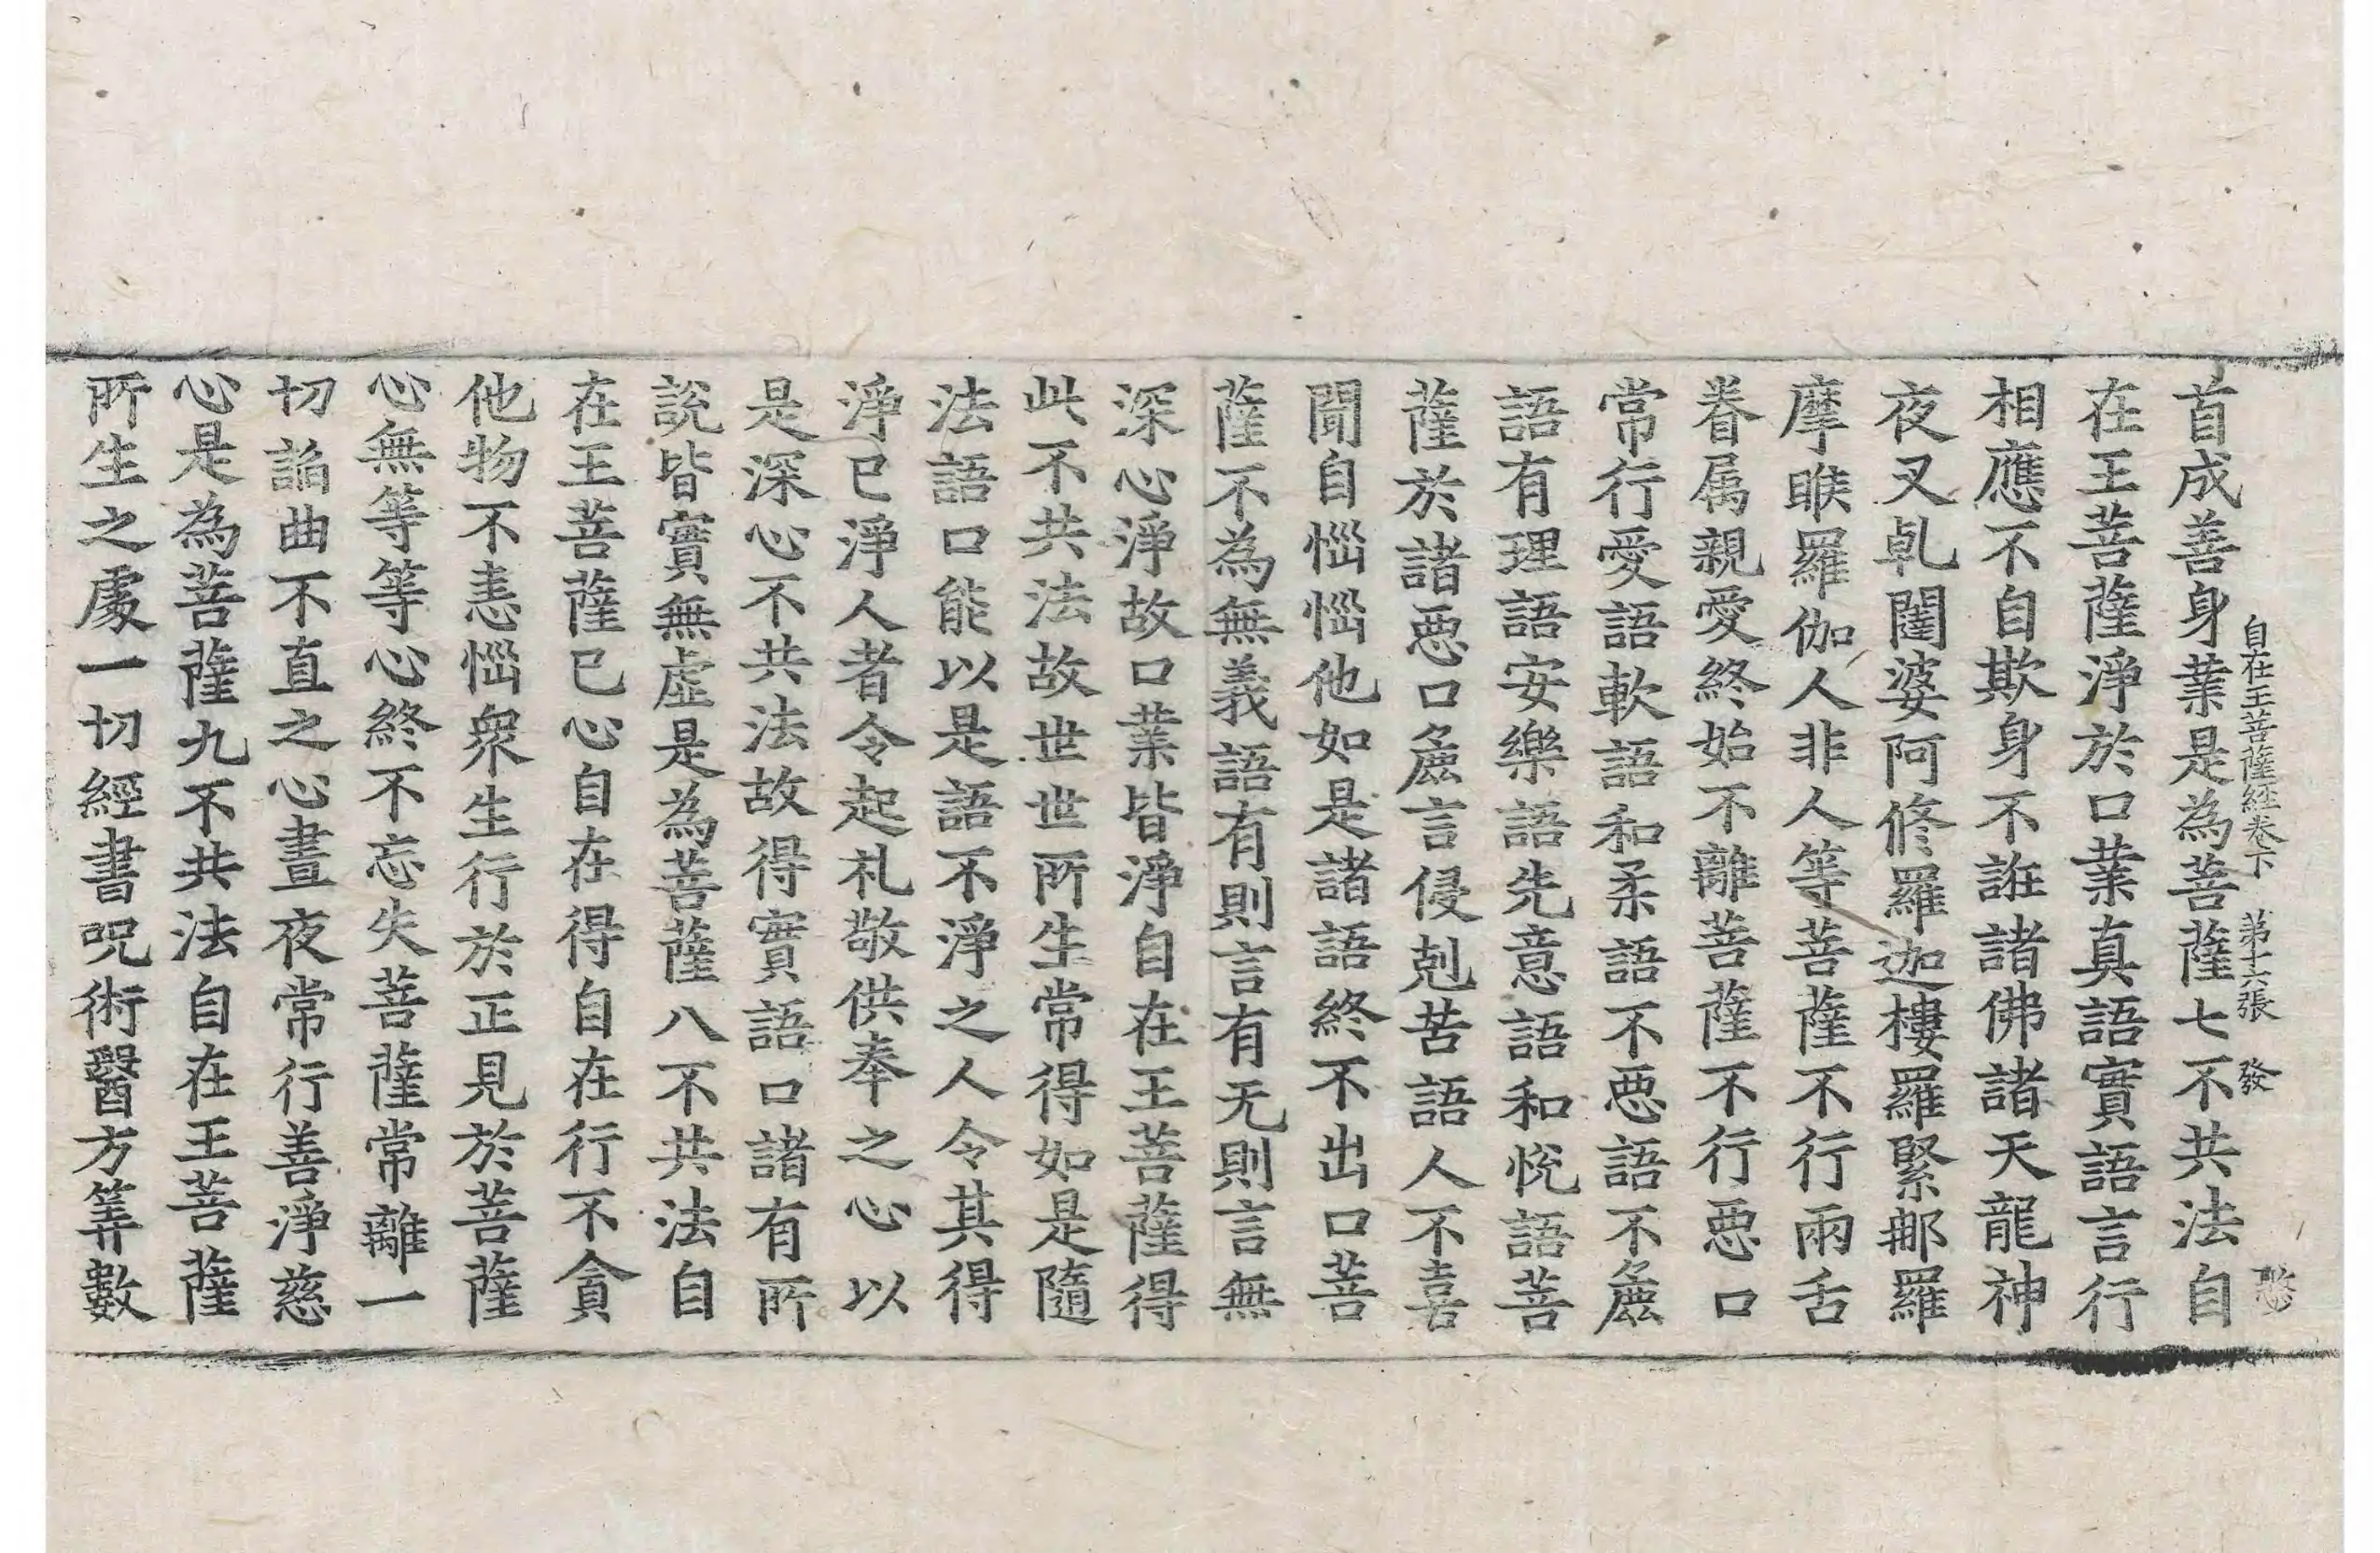 自在王菩薩經卷下 第十六張 發
首成善身業是為菩薩七不共法自
在王菩薩淨於口業真語實語言行
相應不自欺身不誑諸佛諸天龍神
夜叉乹闥婆阿修羅迦樓羅緊那羅
摩睺羅伽人非人等菩薩不行兩舌
眷属親愛終始不離菩薩不行惡口
常行愛語軟語和柔語不惡語不麁
語有理語安樂語先意語和悅語菩
薩於諸惡口麁言侵剋苦語人不喜
聞自惱惱他如是諸語終不出口菩
薩不為無義語有則言有无則言無
深心淨故口業皆淨自在王菩薩得
此不共法故世世所生常得如是隨
法語口能以是語不淨之人令其得
淨已淨人者令起札敬供奉之心以
是深心不共法故得實語口諸有所
說皆實無虛是為菩薩八不共法自
在王菩薩已心自在得自在行不貪
他物不恚惱衆生行於正見於菩薩
心無等等心終不忘失菩薩常離一
切諂曲不直之心晝夜常行善淨慈
心是為菩薩九不共法自在王菩薩
所生之處一切經書呪術醫方筭數